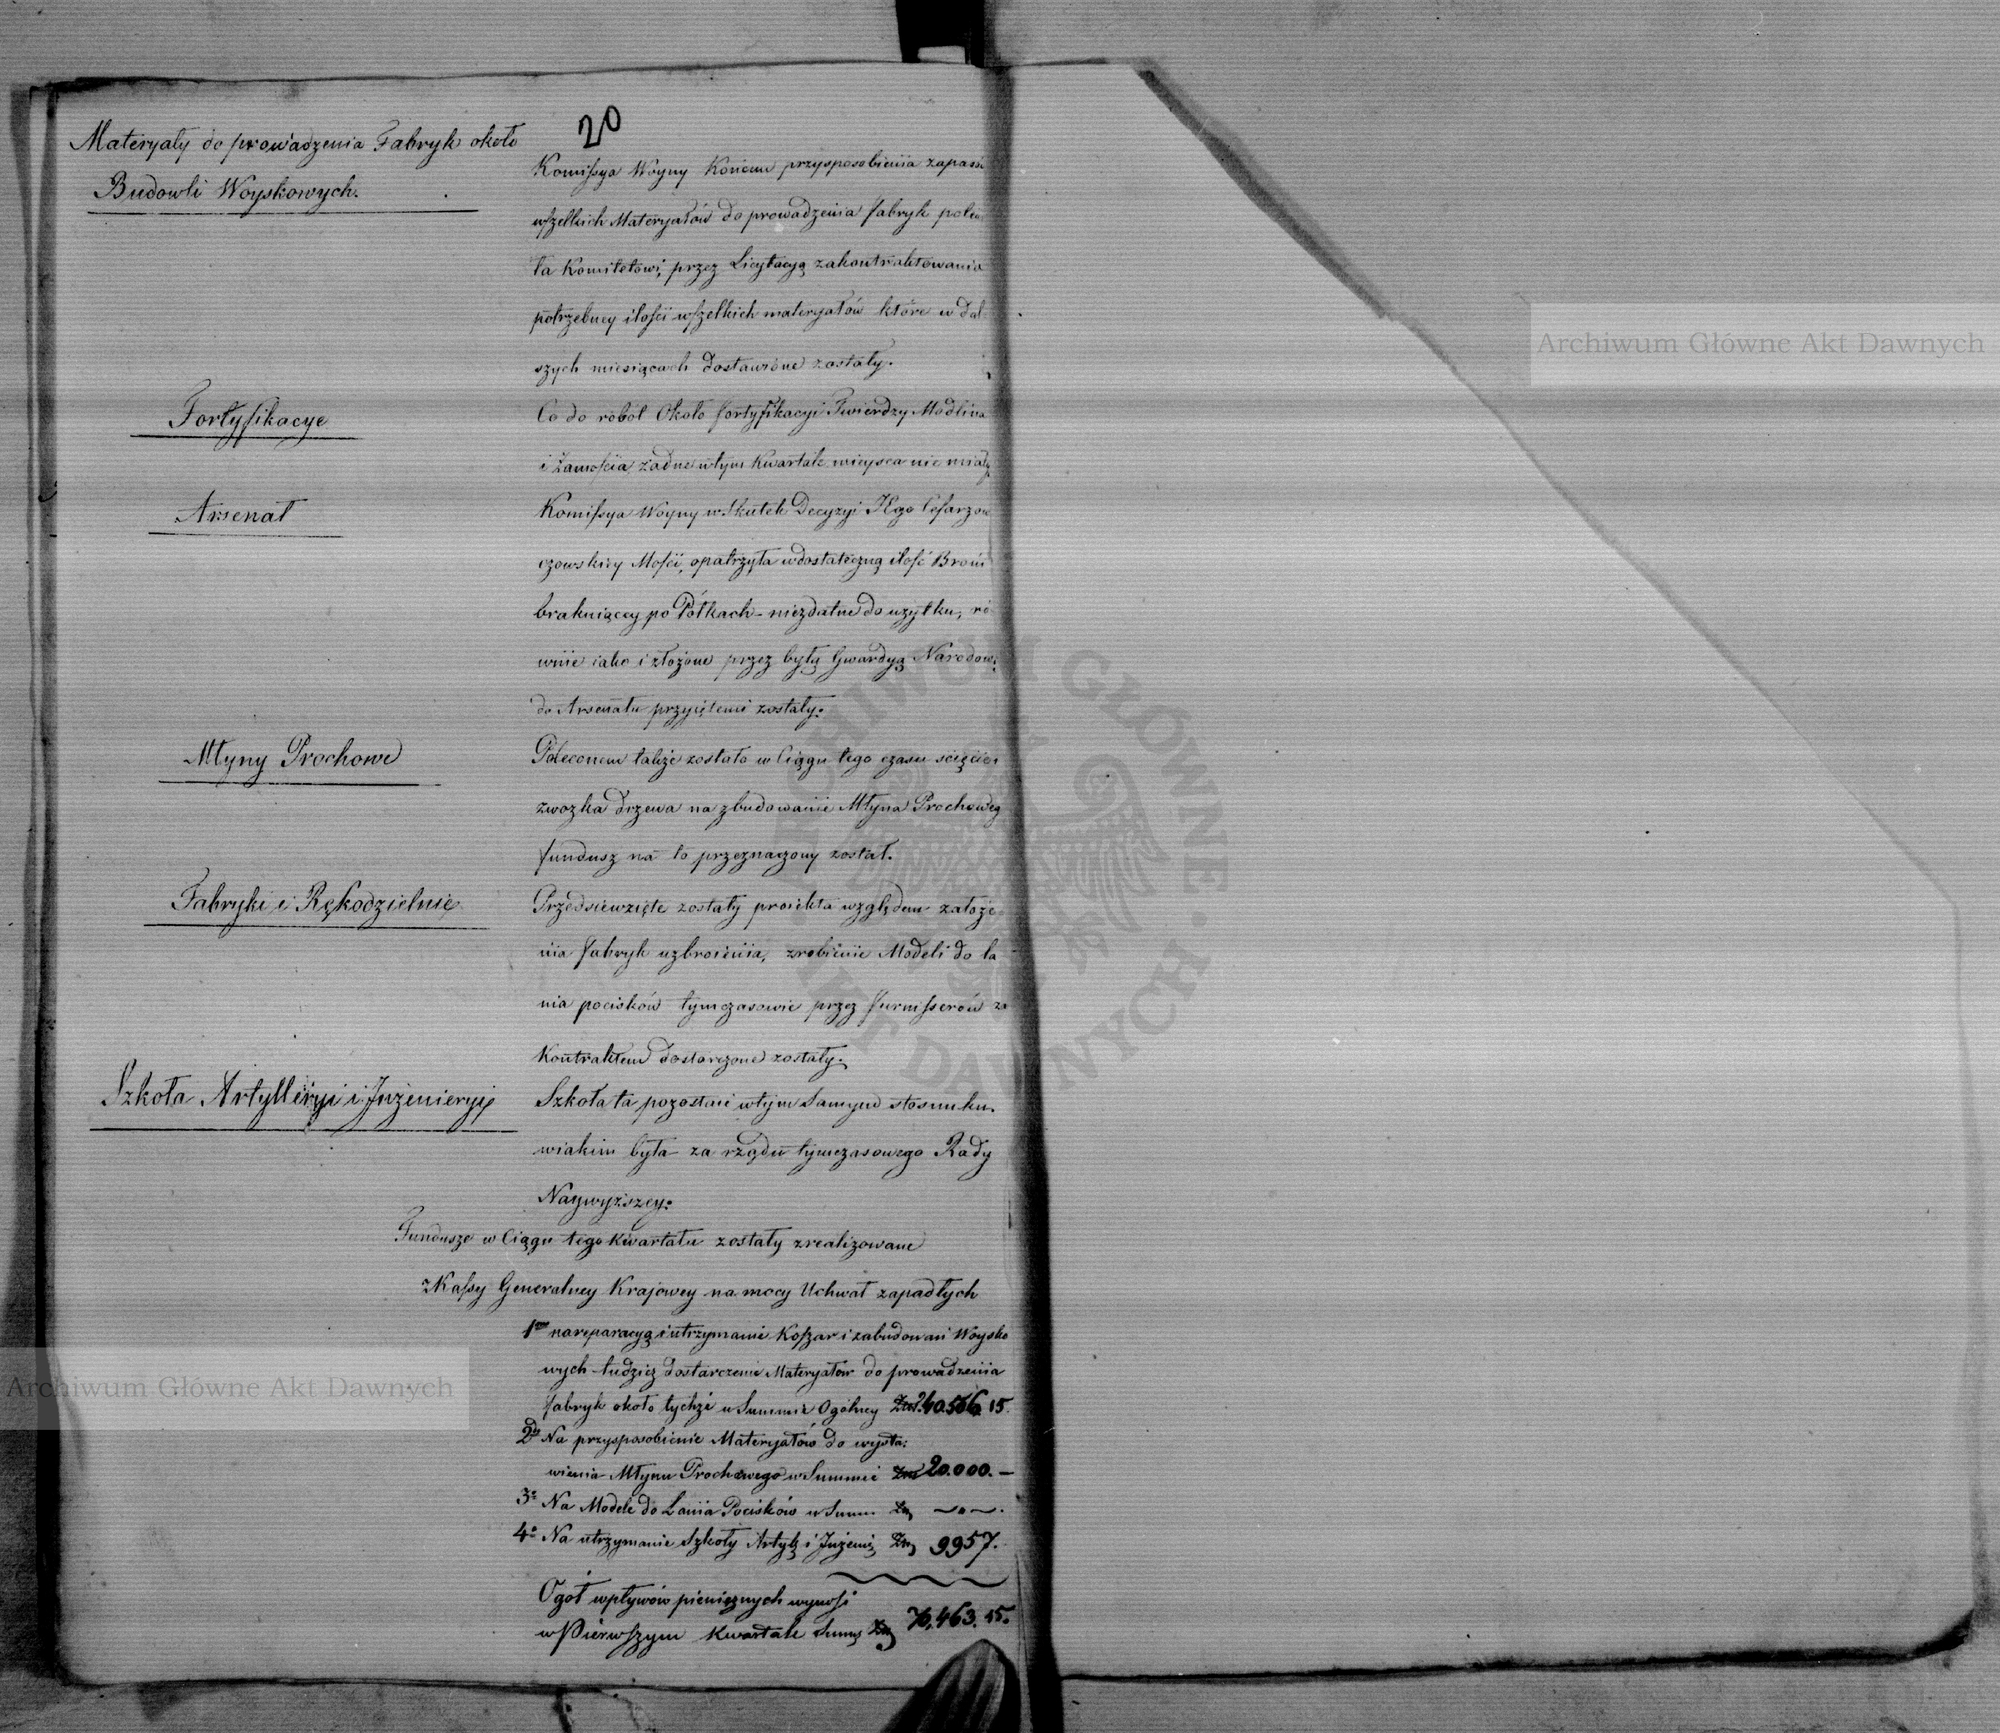 20
Materyały do prowadzenia Fabryk około
Budowli Woyskowych.
Komissya Woyny Końcem przysposobienia zapasu
wszelkich Materyałów do prowadzenia fabryk pole
ła Komitetowi, przez Licytacyą zakontraktowania
potrzebney ilości wszelkich materyałów które w dal
szych miesiącach dostawione zostały.
Fortyfikacye
Co do robót Około fortyfikacyi Twierdzy Modlina
i Zamościa żadne w tym Kwartale mieysca nie miały
Arsenał
Komissya Woyny w Skutek Decyzyi JEgo Cesarzo
czowskiey Mości, opatrzyła w dostateczną ilość Broni
brakuiącey po Pólkach – niezdatne do użytku, ró
wnie iako i złożone przez byłą Gwardyą Narodow
do Arsenału przyiętemi zostały.
Młyny Prochowe
Poleconem także zostało w Ciągu tego czasu ścięcie i
zwozka drzewa na zbudowanie Młyna Prochoweg
fundusz na to przeznaczony został.
Fabryki i Rękodzielnie
Przedsiewzięte zostały proiekta względem założe
nia fabryk uzbroienia, zrobienie Modeli do la
nia pocisków tymczasowie przez furnisserów za
Kontraktem dostarczone zostały.
Szkoła Artylleryi i Jnżenieryi
Szkoła ta pozostaie w tym Samym stosunku.
w iakim była za rządu tymczasowego Rady
Naywyższey.
Fundusze w Ciągu tego Kwartału zostały zrealizowane
z Kassy Generalney Krajowey na mocy Uchwał zapadłych
1mo na reparacyą i utrzymanie Koszar i zabudowań Woysko
wych tudzież dostarczenie Materyałów do prowadzenia
fabryk około tychże w Summie Ogólney Złł. 40.506 15.
2do Na przysposobienie Materyałów do wysta:
wienia Młynu Prochowego w Summie Złł 20.000. –
3o Na Modele do Lania Pocisków w Summ. Zł, –"–.
4o Na utrzymanie Szkoły Artyl: i Jnżenii: Zł, 9957.
Ogół wpływów pienięznych wynosi
w Pierwszym Kwartale Summę Zł, 70,463. 15.
Archiwum Główne Akt Dawnych
Archiwum Główne Akt Dawnych
ARCHIWUM GŁÓWNE AKT DAWNYCH